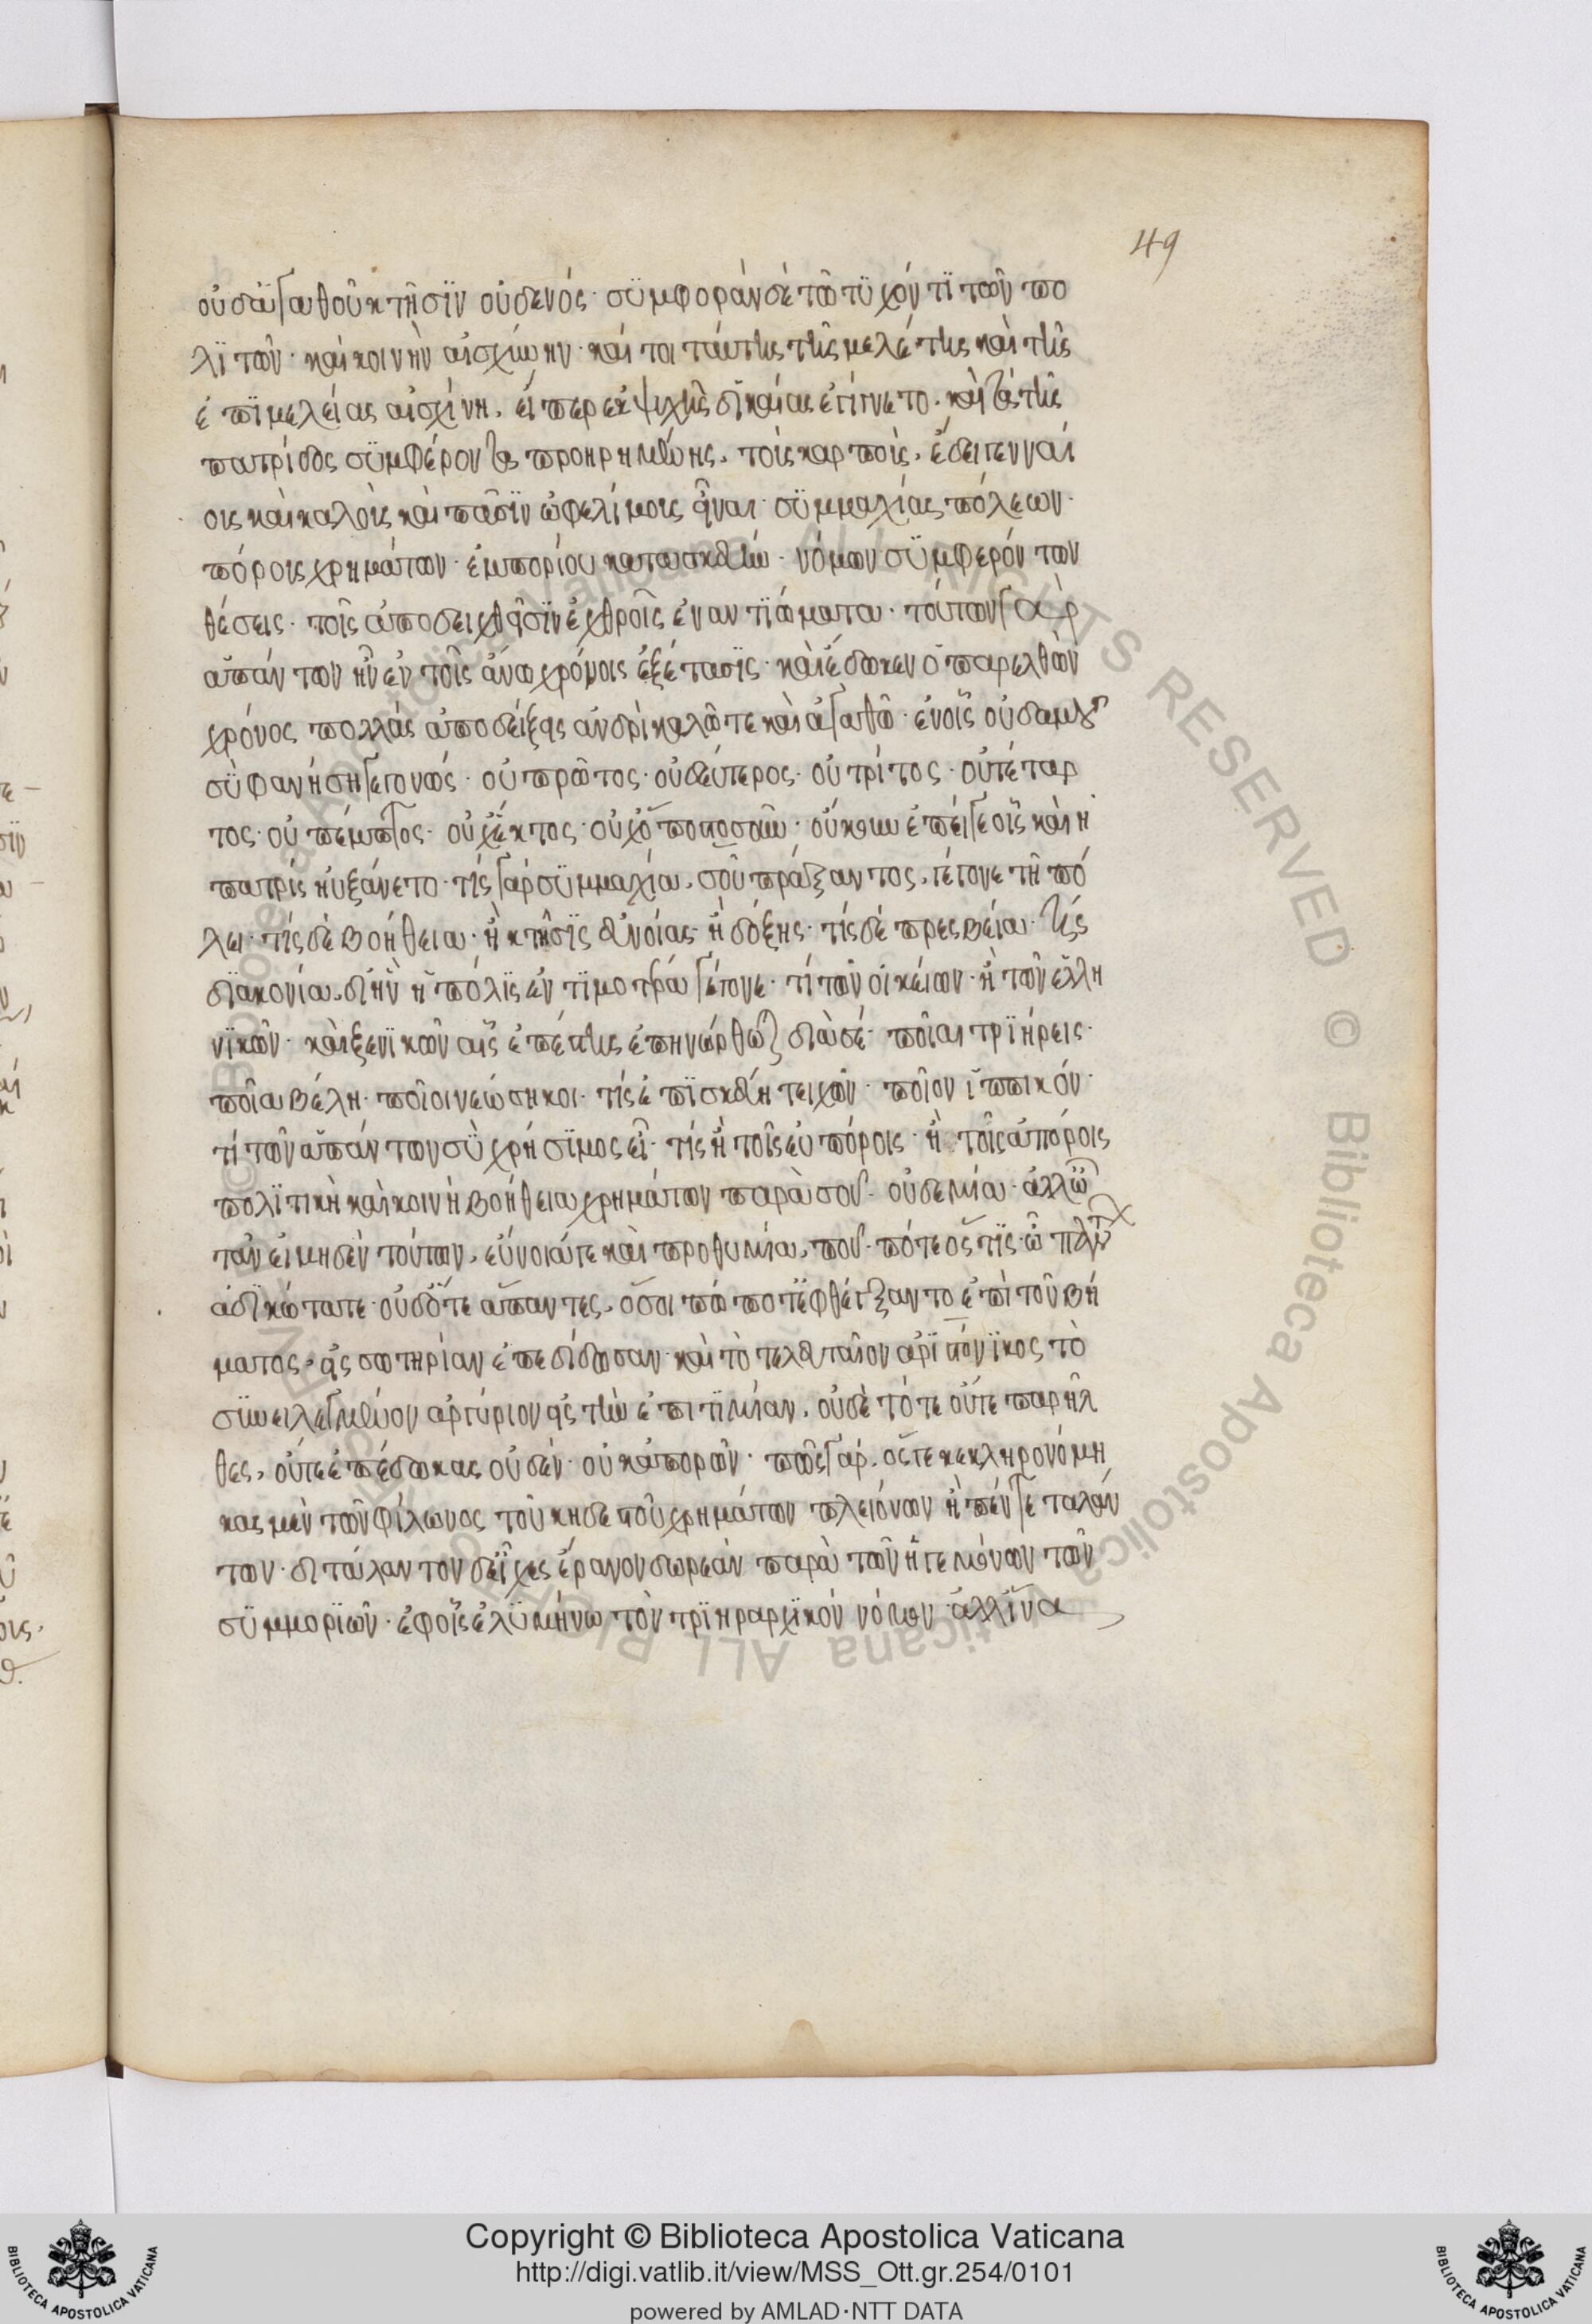 49
οὐδ' ἀγαθοῦ κτῆσϊν οὐδενός· συμφορὰν δὲ τῶ τυχόντϊ τῶν πο
λϊτῶν· καὶ κοινὴν αἰσχύνην· καί τοι ταύτης τῆς μελέτης καὶ τῆς
ἐπϊμελείας αἰσχίνη, εἴπερ ἐκ ψυχῆς δικαίας ἐγίγνετο· καὶ τὰ τῆς
πατρίδος συμφέροντα προηρημένης, τοὺς καρποὺς, ἔδει γενναί
ους καὶ καλοὺς καὶ πᾶσϊν ὠφελίμους εἶναι· συμμαχίας πόλεων·
πόρους χρημάτων· ἐμπορίου κατασκευὴν· νόμων συμφερόντων
θέσεις· τοῖς ἀποδειχθεῖσϊν ἐχθροῖς ἐναντϊώματα· τούτων γὰρ
ἁπάντων ἦν ἐν τοῖς ἄνω χρόνοις ἐξέτασϊς· καὶ ἔδωκεν ὁ παρελθὼν
χρόνος πολλὰς ἀποδείξεις ἀνδρὶ καλῶ τε καὶ ἀγαθῶ· ἐν οἷς οὐδαμοῦ
σὺ φανήση γεγονώς· οὐ πρῶτος· οὐ δεύτερος· οὐ τρίτος· οὐ τέταρ
τος· οὐ πέμπτος· οὐχ ἕκτος· οὐχ ὁποστοσοῦν· οὔκουν ἐπί γε οἷς καὶ ἡ
πατρὶς ηὐξάνετο· τίς γὰρ συμμαχία, σοῦ πράξαντος, γέγονε τῆ πό
λει· τίς δὲ βοήθεια· ἢ κτῆσϊς εὐνοίας· ἢ δόξης· τίς δὲ πρεσβεία· τίς
διακονία, δι' ἣν ἡ πόλϊς ἐντϊμοτέρα γέγονε· τί τῶν οἰκείων· ἢ τῶν ἑλλη
νϊκῶν· καὶ ξενϊκῶν οἷς ἐπέστης ἐπηνώρθωται διὰ σέ· ποῖαι τρϊήρεις·
ποῖα βέλη· ποῖοι νεώσηκοι· τίς ἐπϊσκευὴ τειχῶν· ποῖον ἱππικόν·
τί τῶν ἁπάντων σὺ χρήσϊμος εἶ· τίς ἢ τοῖς εὐπόροις· ἢ τοῖς ἀπόροις
πολϊτικὴ καὶ κοινὴ βοήθεια χρημάτων παρὰ σοῦ· οὐδεμία· ἀλλ' ὦ
τᾶν εἰ μηδὲν τούτων, εὔνοιά τε καὶ προθυμία, ποῦ· πότε ὅς τϊς· ὦ πάντων
ἀδϊκώτατε· οὐδ' ὅτε ἅπαντες, ὅσοι πώποτ' ἐφθέγξαντο ἐπὶ τοῦ βή
ματος, εἰς σωτηρίαν ἐπεδίδοσαν· καὶ τὸ τελευταῖον ἀρϊστόνϊκος τὸ
συνειλεγμένον ἀργύριον εἰς τὴν ἐπιτϊμίαν, οὐδὲ τότε οὔτε παρῆλ
θες, οὔτε ἐπέδωκας οὐδέν· οὐκ ἀπορῶν· πῶς γάρ, ὅς γε κεκληρονόμη
κας μὲν τῶν φίλωνος τοῦ κηδεστοῦ χρημάτων πλειόνων ἢ πέντε ταλάν
των· διτάλαντον δ' εἶχες ἔρανον δωρεὰν παρὰ τῶν ἡγεμόνων τῶν
συμμορϊῶν· ἐφ' οἷς ἐλυμήνω τὸν τρϊηραρχϊκόν νόμον· ἀλλ' ἵνα
© Biblioteca Apostolica Vaticana ALL RIGHTS RESERVED © Biblioteca Apostolica Vaticana ALL RIGHTS RESERVED
BIBLIOTECA APOSTOLICA VATICANA
Copyright © Biblioteca Apostolica Vaticana
http://digi.vatlib.it/view/MSS_Ott.gr.254/0101
powered by AMLAD·NTT DATA
BIBLIOTECA APOSTOLICA VATICANA